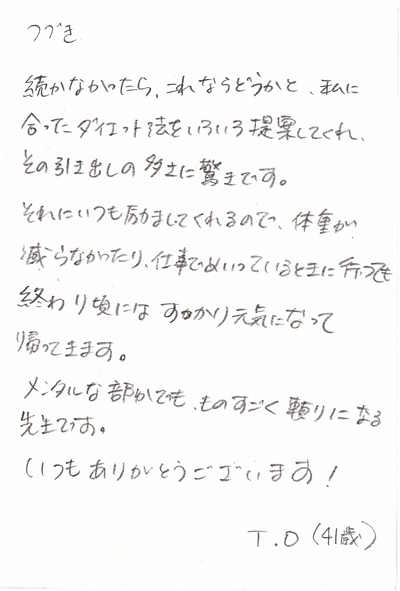 つづき
続かなかったら、これならどうかと、私に
合ったダイエット法をいろいろ提案してくれ、
その引き出しの多さに驚きです。
それにいつも励ましてくれるので、体重が
減らなかったり、仕事でめいっているときに行っても
終わり頃にはすっかり元気になって
帰ってきます。
メンタルな部分でも、ものすごく頼りになる
先生です。
いつもありがとうございます!
T.O(41歳)